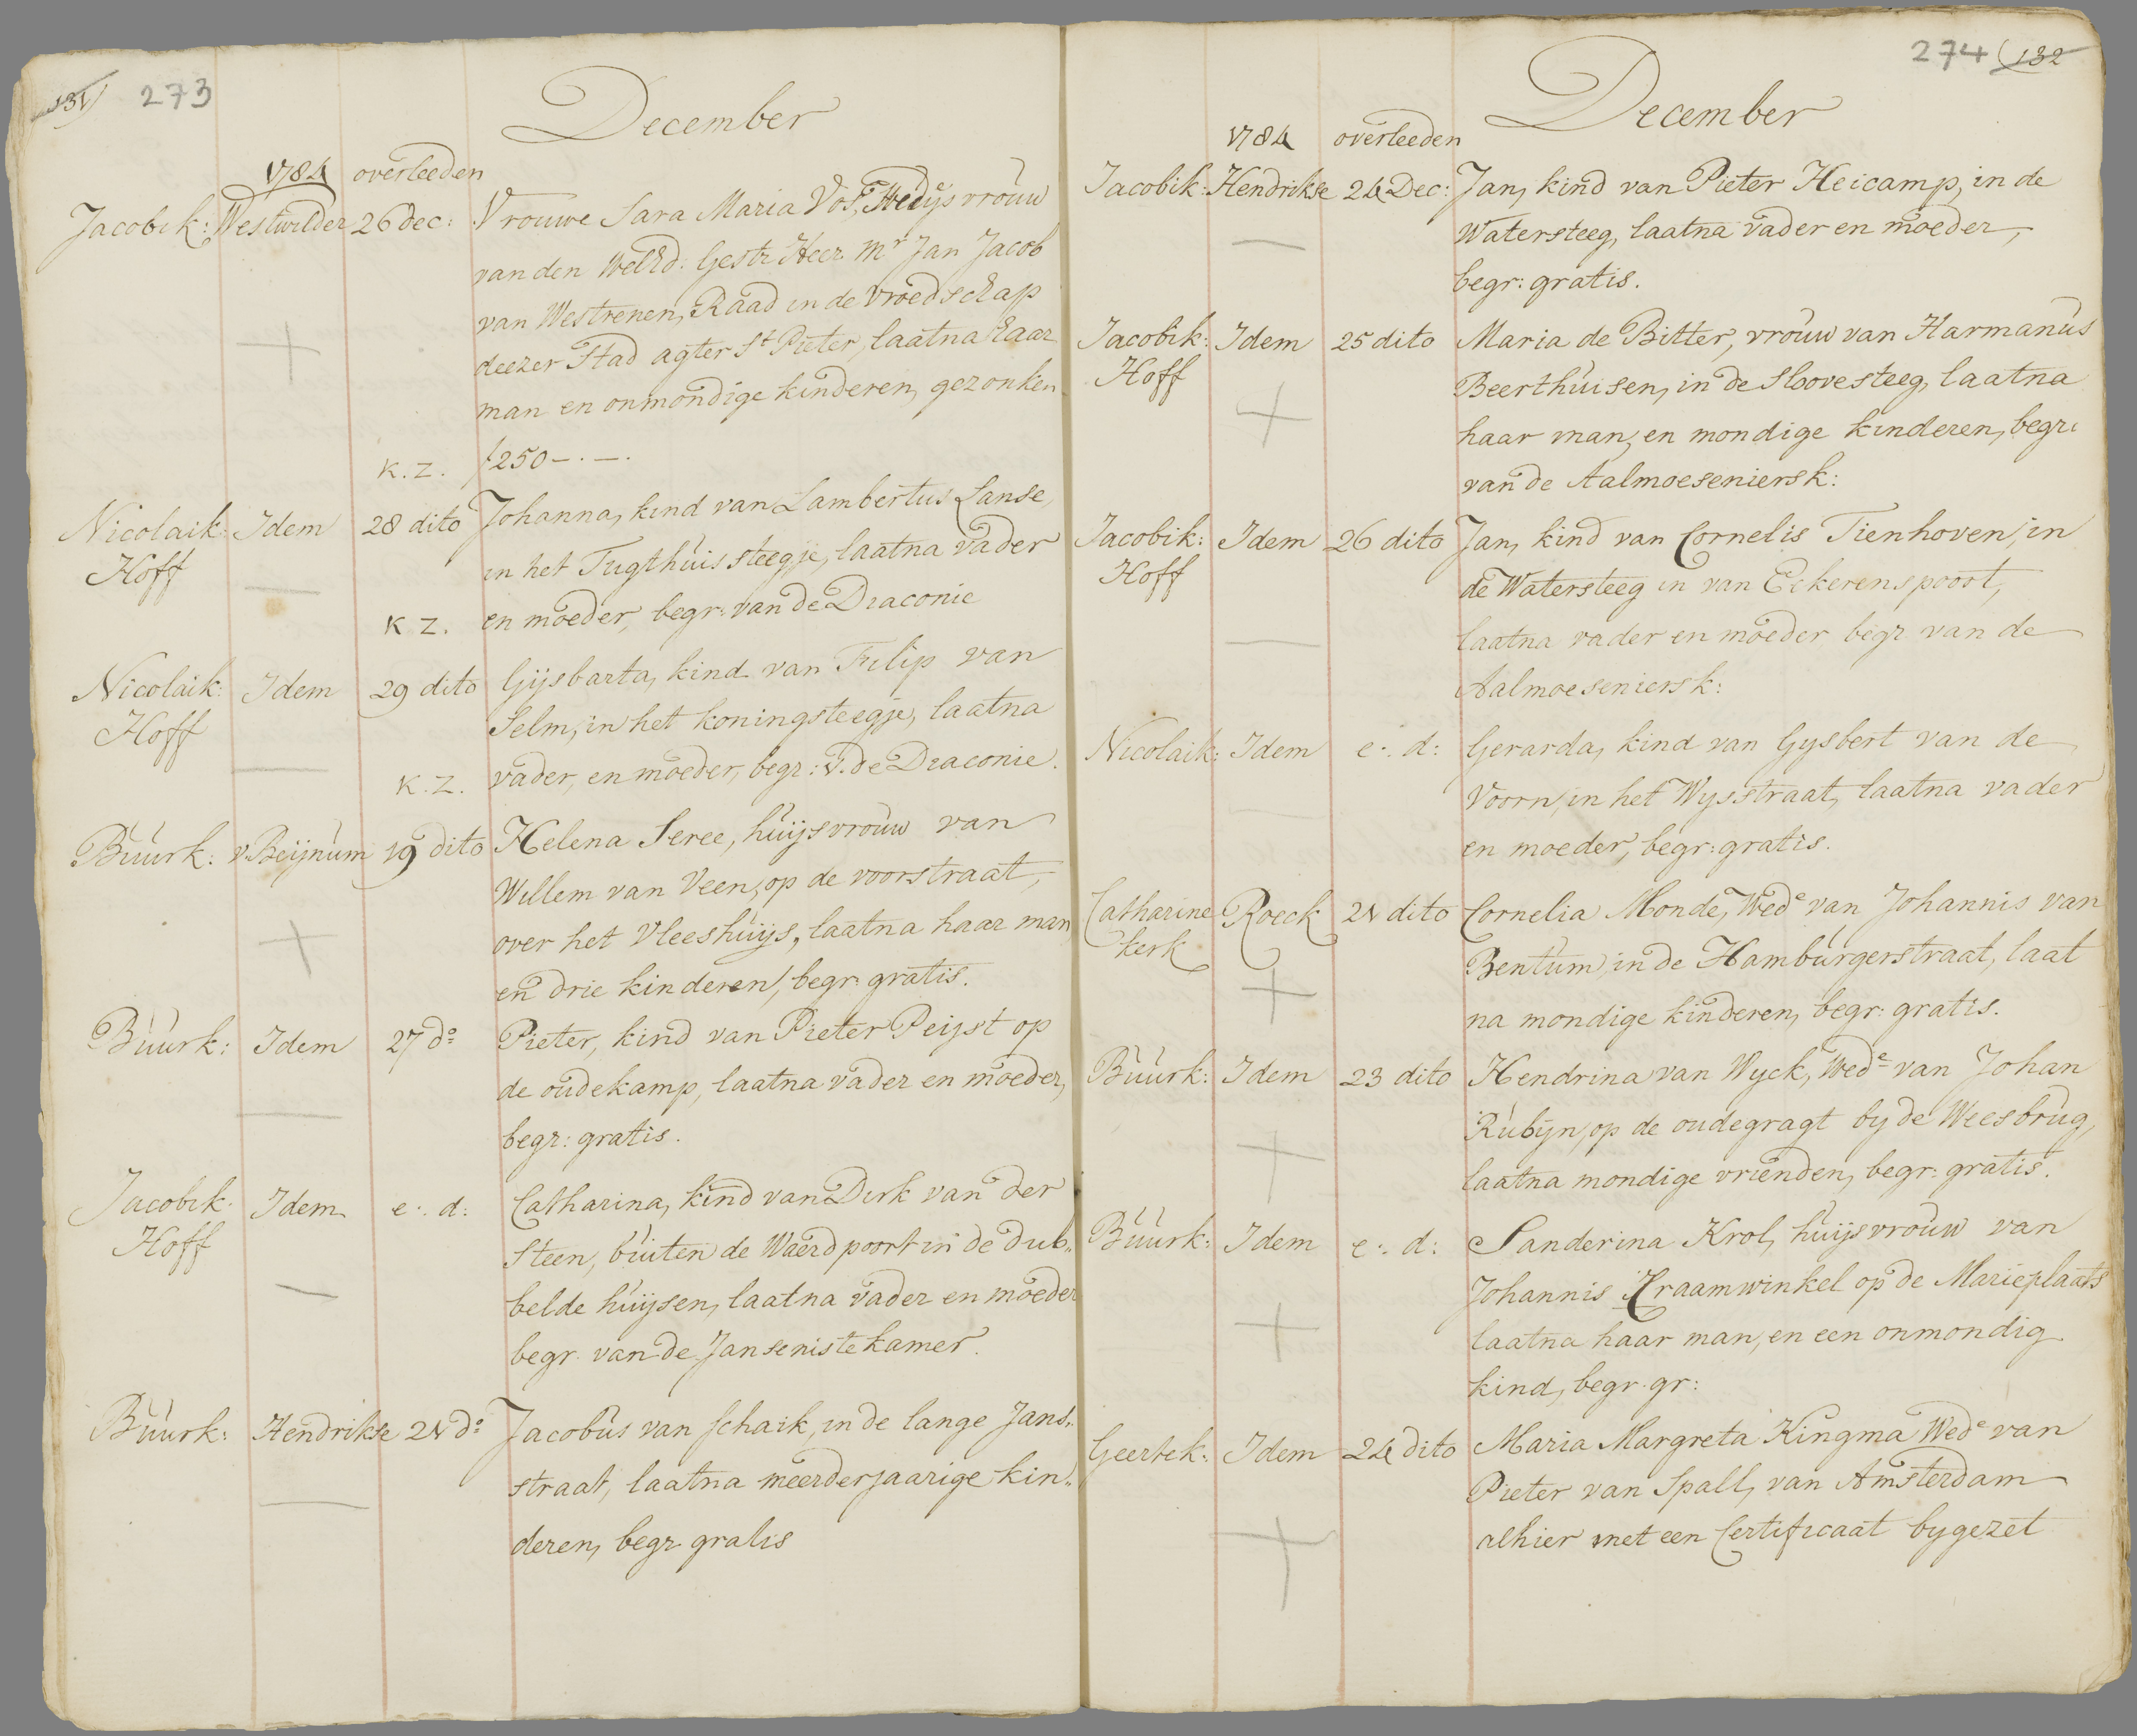 131) 273
December
1784 overleeden
Jacobik: Westwilder 26 dec: Vrouwe Sara Maria Vos, Huijsvrouw
van den WelEd: Gestr Heer Mr Jan Jacob
van Westrenen, Raad in de vroedschap
deezer Stad agter St Pieter, laatna haar
man en onmondige kinderen, gezonken
K.Z. ƒ250-.-.
Nicolaik: Idem 28 dito Johanna, kind van Lambertus Lanse,
Hoff in het Tugthuissteegje, laatna vader
K Z. en moeder, begr: van de Diaconie
Nicolaik: Idem 29 dito Gijsbarta, kind van Filip van
Hoff Selm, in het koningsteegje, laatna
K.Z. vader, en moeder, begr: v. de Diaconie.
Buurk: v. Beijnum 19 dito Helena Seree, huijsvrouw van
Willem van Veen, op de voorstraat,
over het Vleeshuijs, laatna haar man
en drie kinderen, begr: gratis.
Buurk: Idem 27 do Pieter, kind van Pieter Peijst op
de oudekamp, laatna vader en moeder,
begr: gratis.
Jacobik: Idem e:. d: Catharina, kind van Dirk van der
Hoff Steen, buiten de Waerdpoort in de dub„
belde huijsen, laatna vader en moeder
begr. van de Janseniste kamer.
Buurk: Hendrikse 21 do Jacobus van Schaik, in de lange Jans„
straat, laatna meerderjaarige kin„
deren, begr gratis
274 (132
December
1784 overleeden
Jacobik: Hendrikse 24 Dec: Jan, kind van Pieter Heicamp, in de
Watersteeg, laatna vader en moeder,
begr: gratis.
Jacobik: Idem 25 dito Maria de Bitter, vrouw van Harmanus
Hoff Beerthuisen, in de Sloovesteeg, laatna
haar man, en mondige kinderen, begr:
van de Aalmoeseniersk:
Jacobik: Idem 26 dito Jan, kind van Cornelis Tienhoven, in
Hoff de Watersteeg in van Eckerenspoort,
laatna vader en moeder begr van de
Aalmoeseniersk:
Nicolaik: Idem e:. d: Gerarda, kind van Gysbert van de
Voorn, in het Wysstraat, laatna vader
en moeder, begr: gratis.
Catharine Roeck 21 dito Cornelia Monde, Wede van Johannis van
kerk Bentum, in de Hamburgerstraat, laat
na mondige kinderen, begr: gratis.
Buurk: Idem 23 dito Hendrina van Wyck, Wede van Johan
Rubyn, op de oudegragt by de Weesbrug,
laatna mondige vrienden, begr: gratis.
Buurk: Idem e:. d: Sanderina Krol, huijsvrouw van
Johannis Kraamwinkel op de Marieplaats
laatna haar man, en een onmondig
kind, begr. gr:
Geertek: Idem 24 dito Maria Margreta Kingma Wede van
Pieter van Spall, van Amsterdam
alhier met een Certificaat bygezet